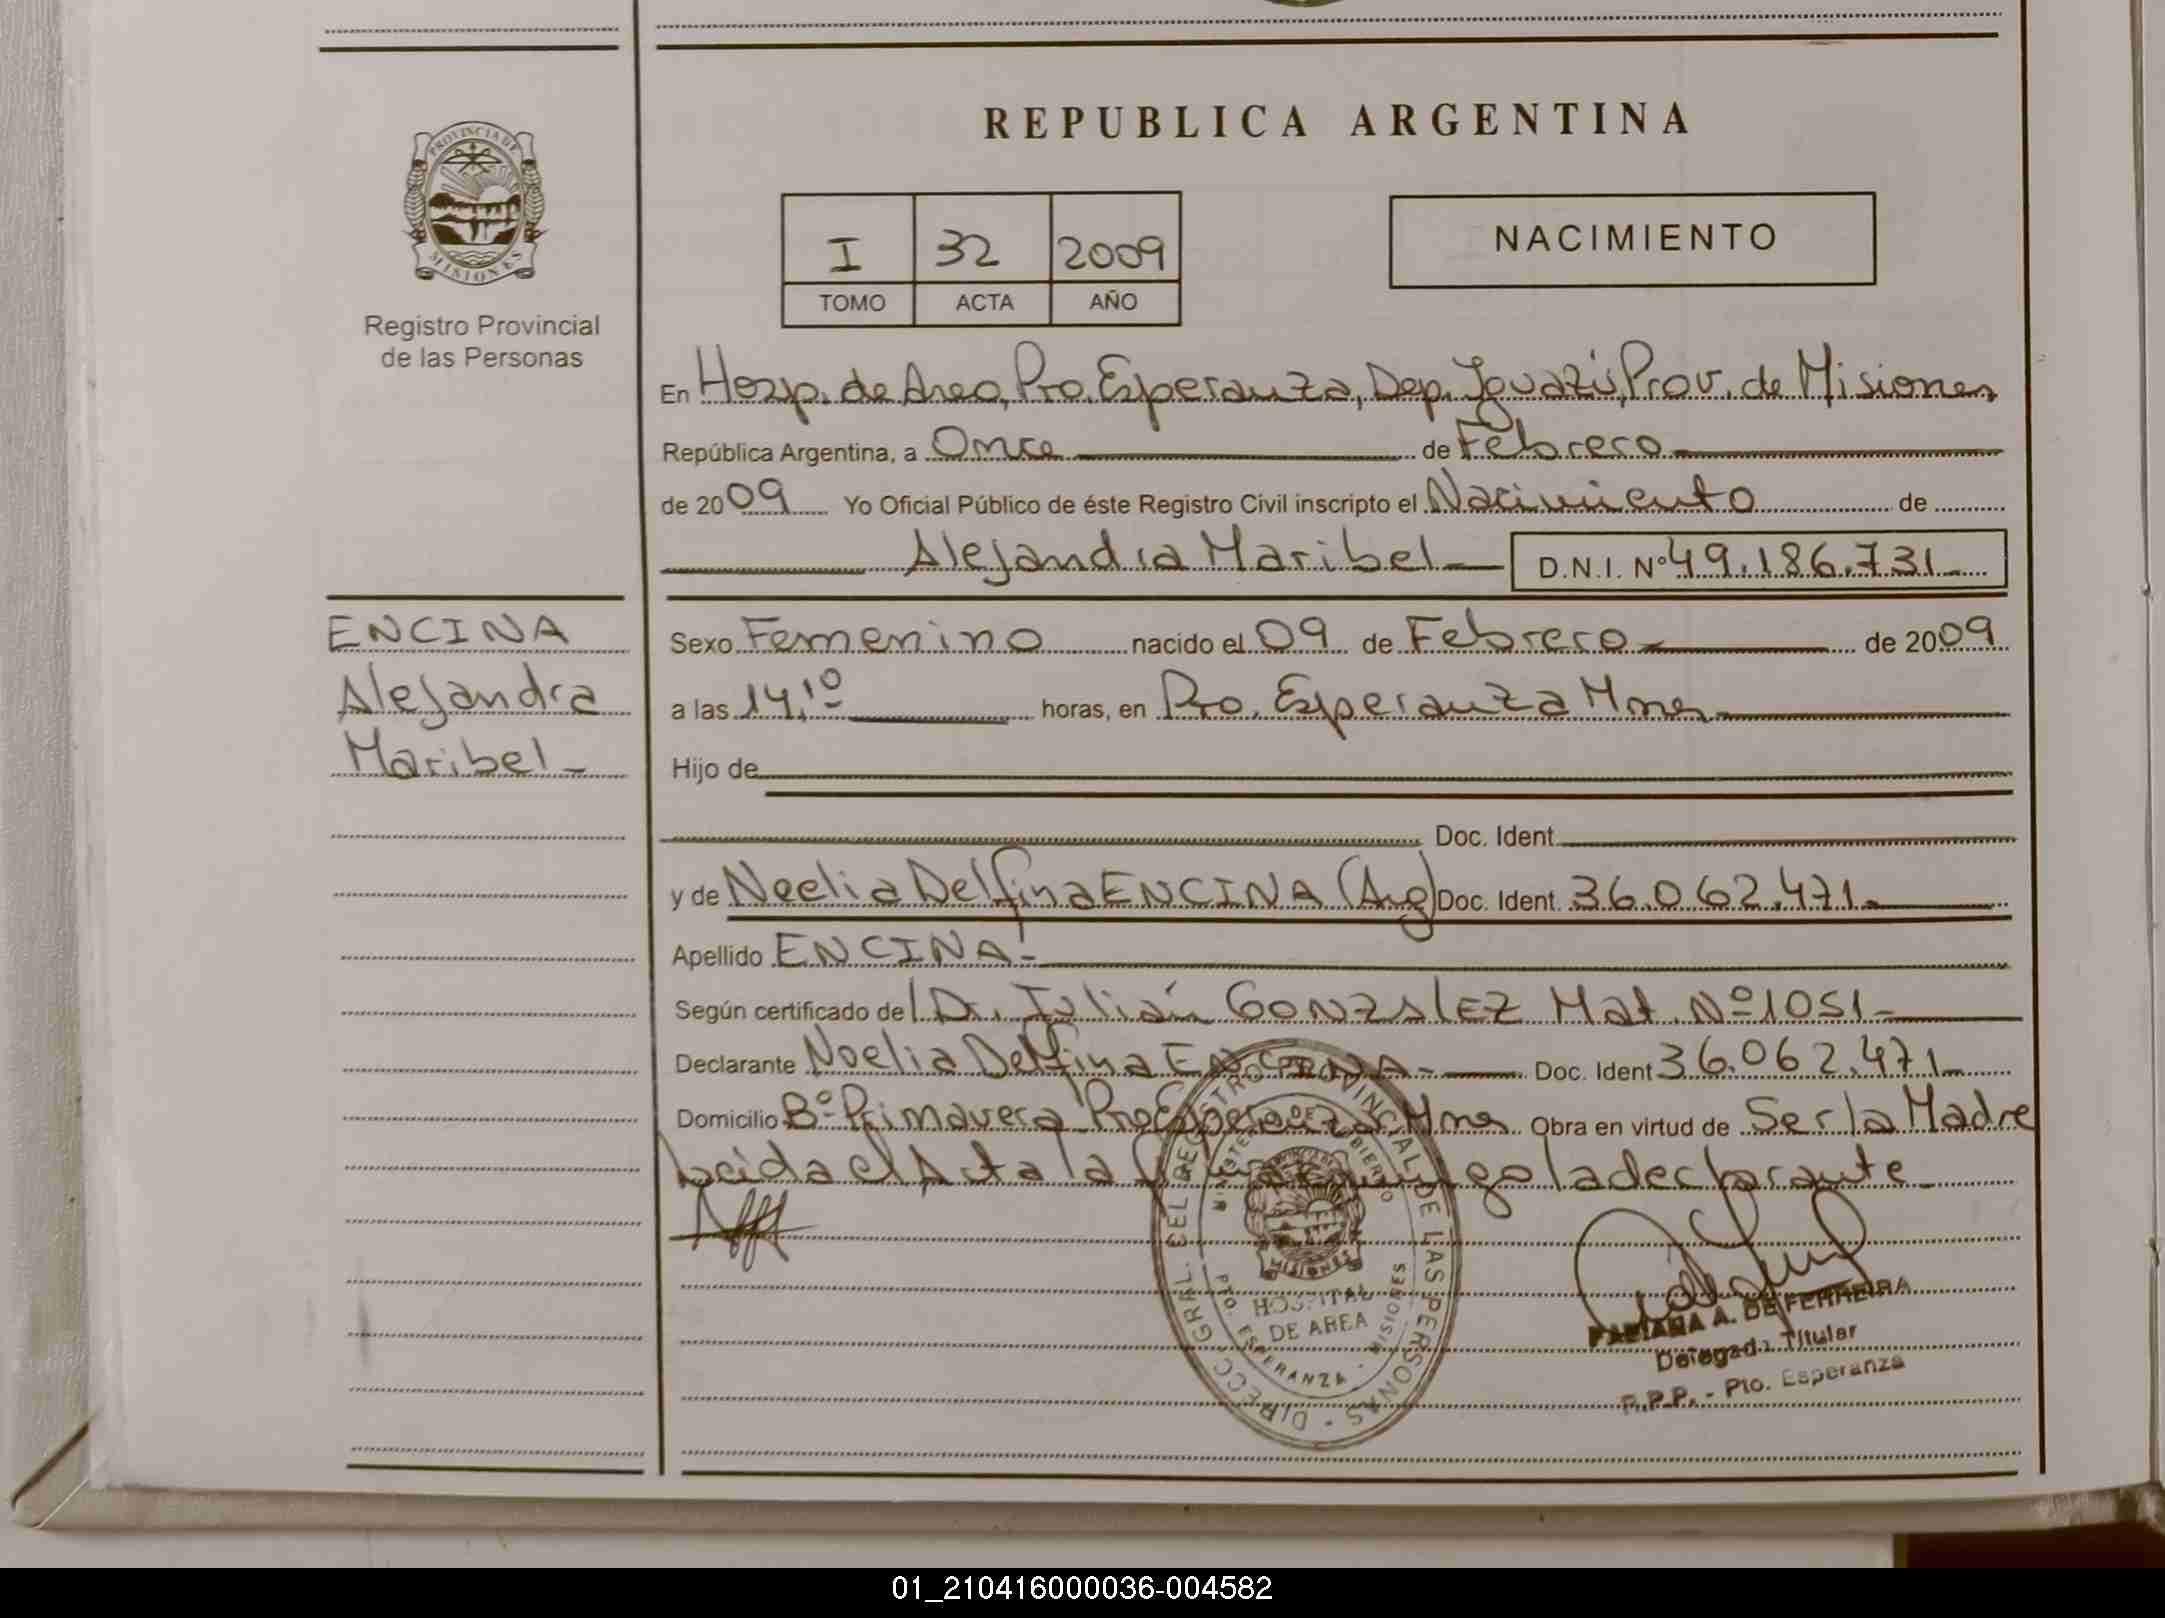 REPUBLICA ARGENTINA
PROVINCIA DE
MISIONES
Registro Provincial
de las Personas
I 32 2009
TOMO ACTA AÑO
NACIMIENTO
En Hosp. de Area, Pto. Esperanza, Dep. Iguazú, Prov. de Misiones,
República Argentina, a Once de Febrero
de 2009 Yo Oficial Público de éste Registro Civil inscripto el Nacimiento de
Alejandra Maribel D.N.I. Nº 49.186.731
ENCINA
Alejandra
Maribel
Sexo Femenino nacido el 09 de Febrero de 2009
a las 14,10 horas, en Pto. Esperanza Mnes
Hijo de
Doc. Ident.
y de Noelia Delfina ENCINA (Arg) Doc. Ident. 36.062.471.
Apellido ENCINA
Según certificado del Dr. Julián GONZALEZ Mat. Nº 1051
Declarante Noelia Delfina ENCINA Doc. Ident 36.062.471
Domicilio Bº Primavera Pto Esperanza Mnes Obra en virtud de Ser la Madre
Leida el Acta la la declarante
DIRECC. GRAL. DEL REGISTRO PROVINCIAL DE LAS PERSONAS
MINISTERIO DE GOBIERNO
MISIONES
HOSPITAL
DE AREA
PTO. ESPERANZA - MISIONES
FABIANA A. DE FERREIRA
Delegada Titular
R.P.P. - Pto. Esperanza
01_210416000036-004582